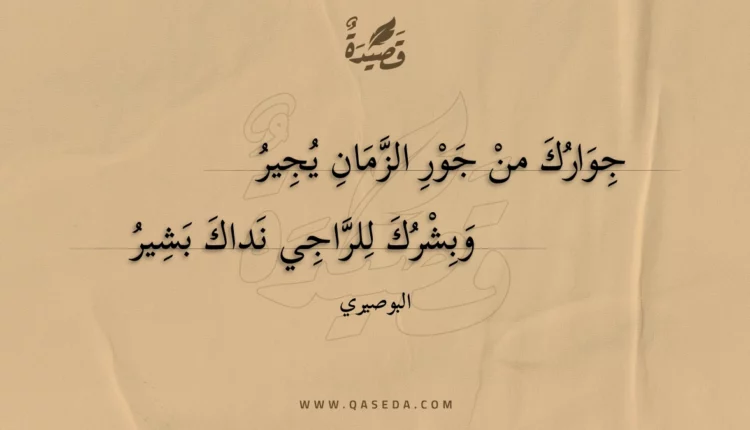 قَصِيدَةٌ
جِوَارُكَ منْ جَوْرِ الزَّمَانِ يُجِيرُ
وَبِشْرُكَ لِلرَّاجِي نَداكَ بَشِيرُ
البوصيري
WWW.QASEDA.COM